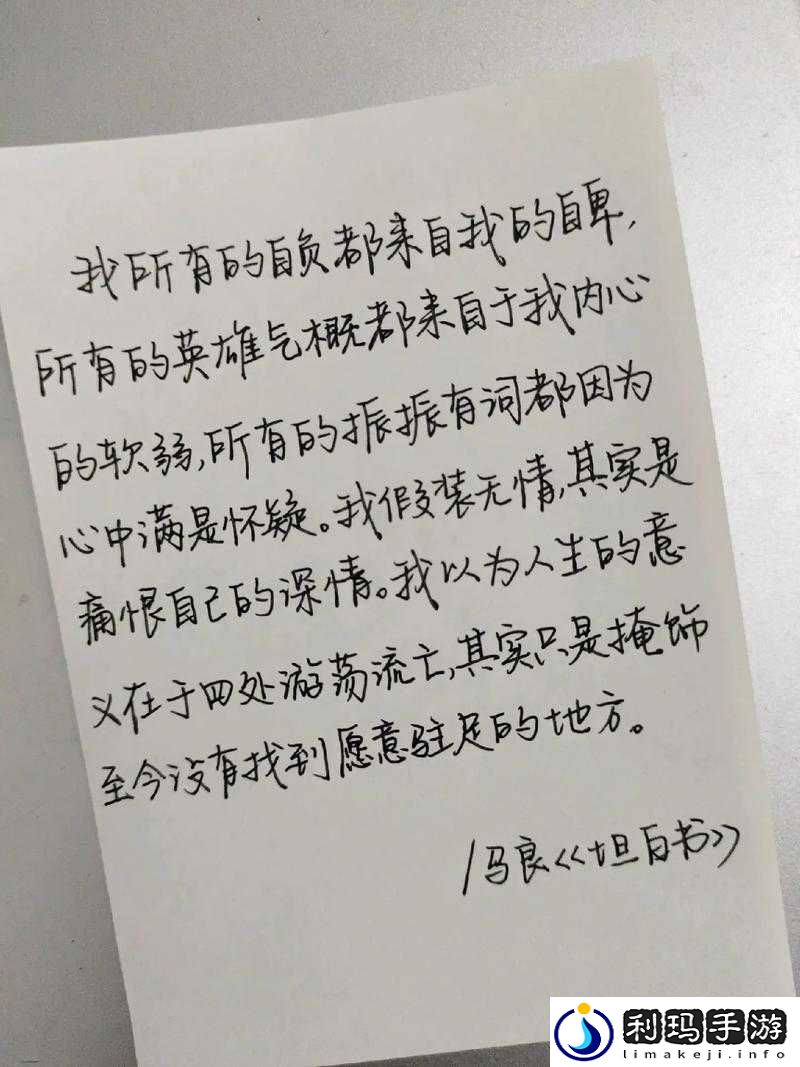 我所有的自负都来自我的自卑，
所有的英雄气概都来自于我内心
的软弱，所有的振振有词都因为
心中满是怀疑。我假装无情，其实是
痛恨自己的深情。我以为人生的意
义在于四处游荡流亡，其实只是掩饰
至今没有找到愿意驻足的地方。
/马良《坦白书》
利玛手游
limakeji.info